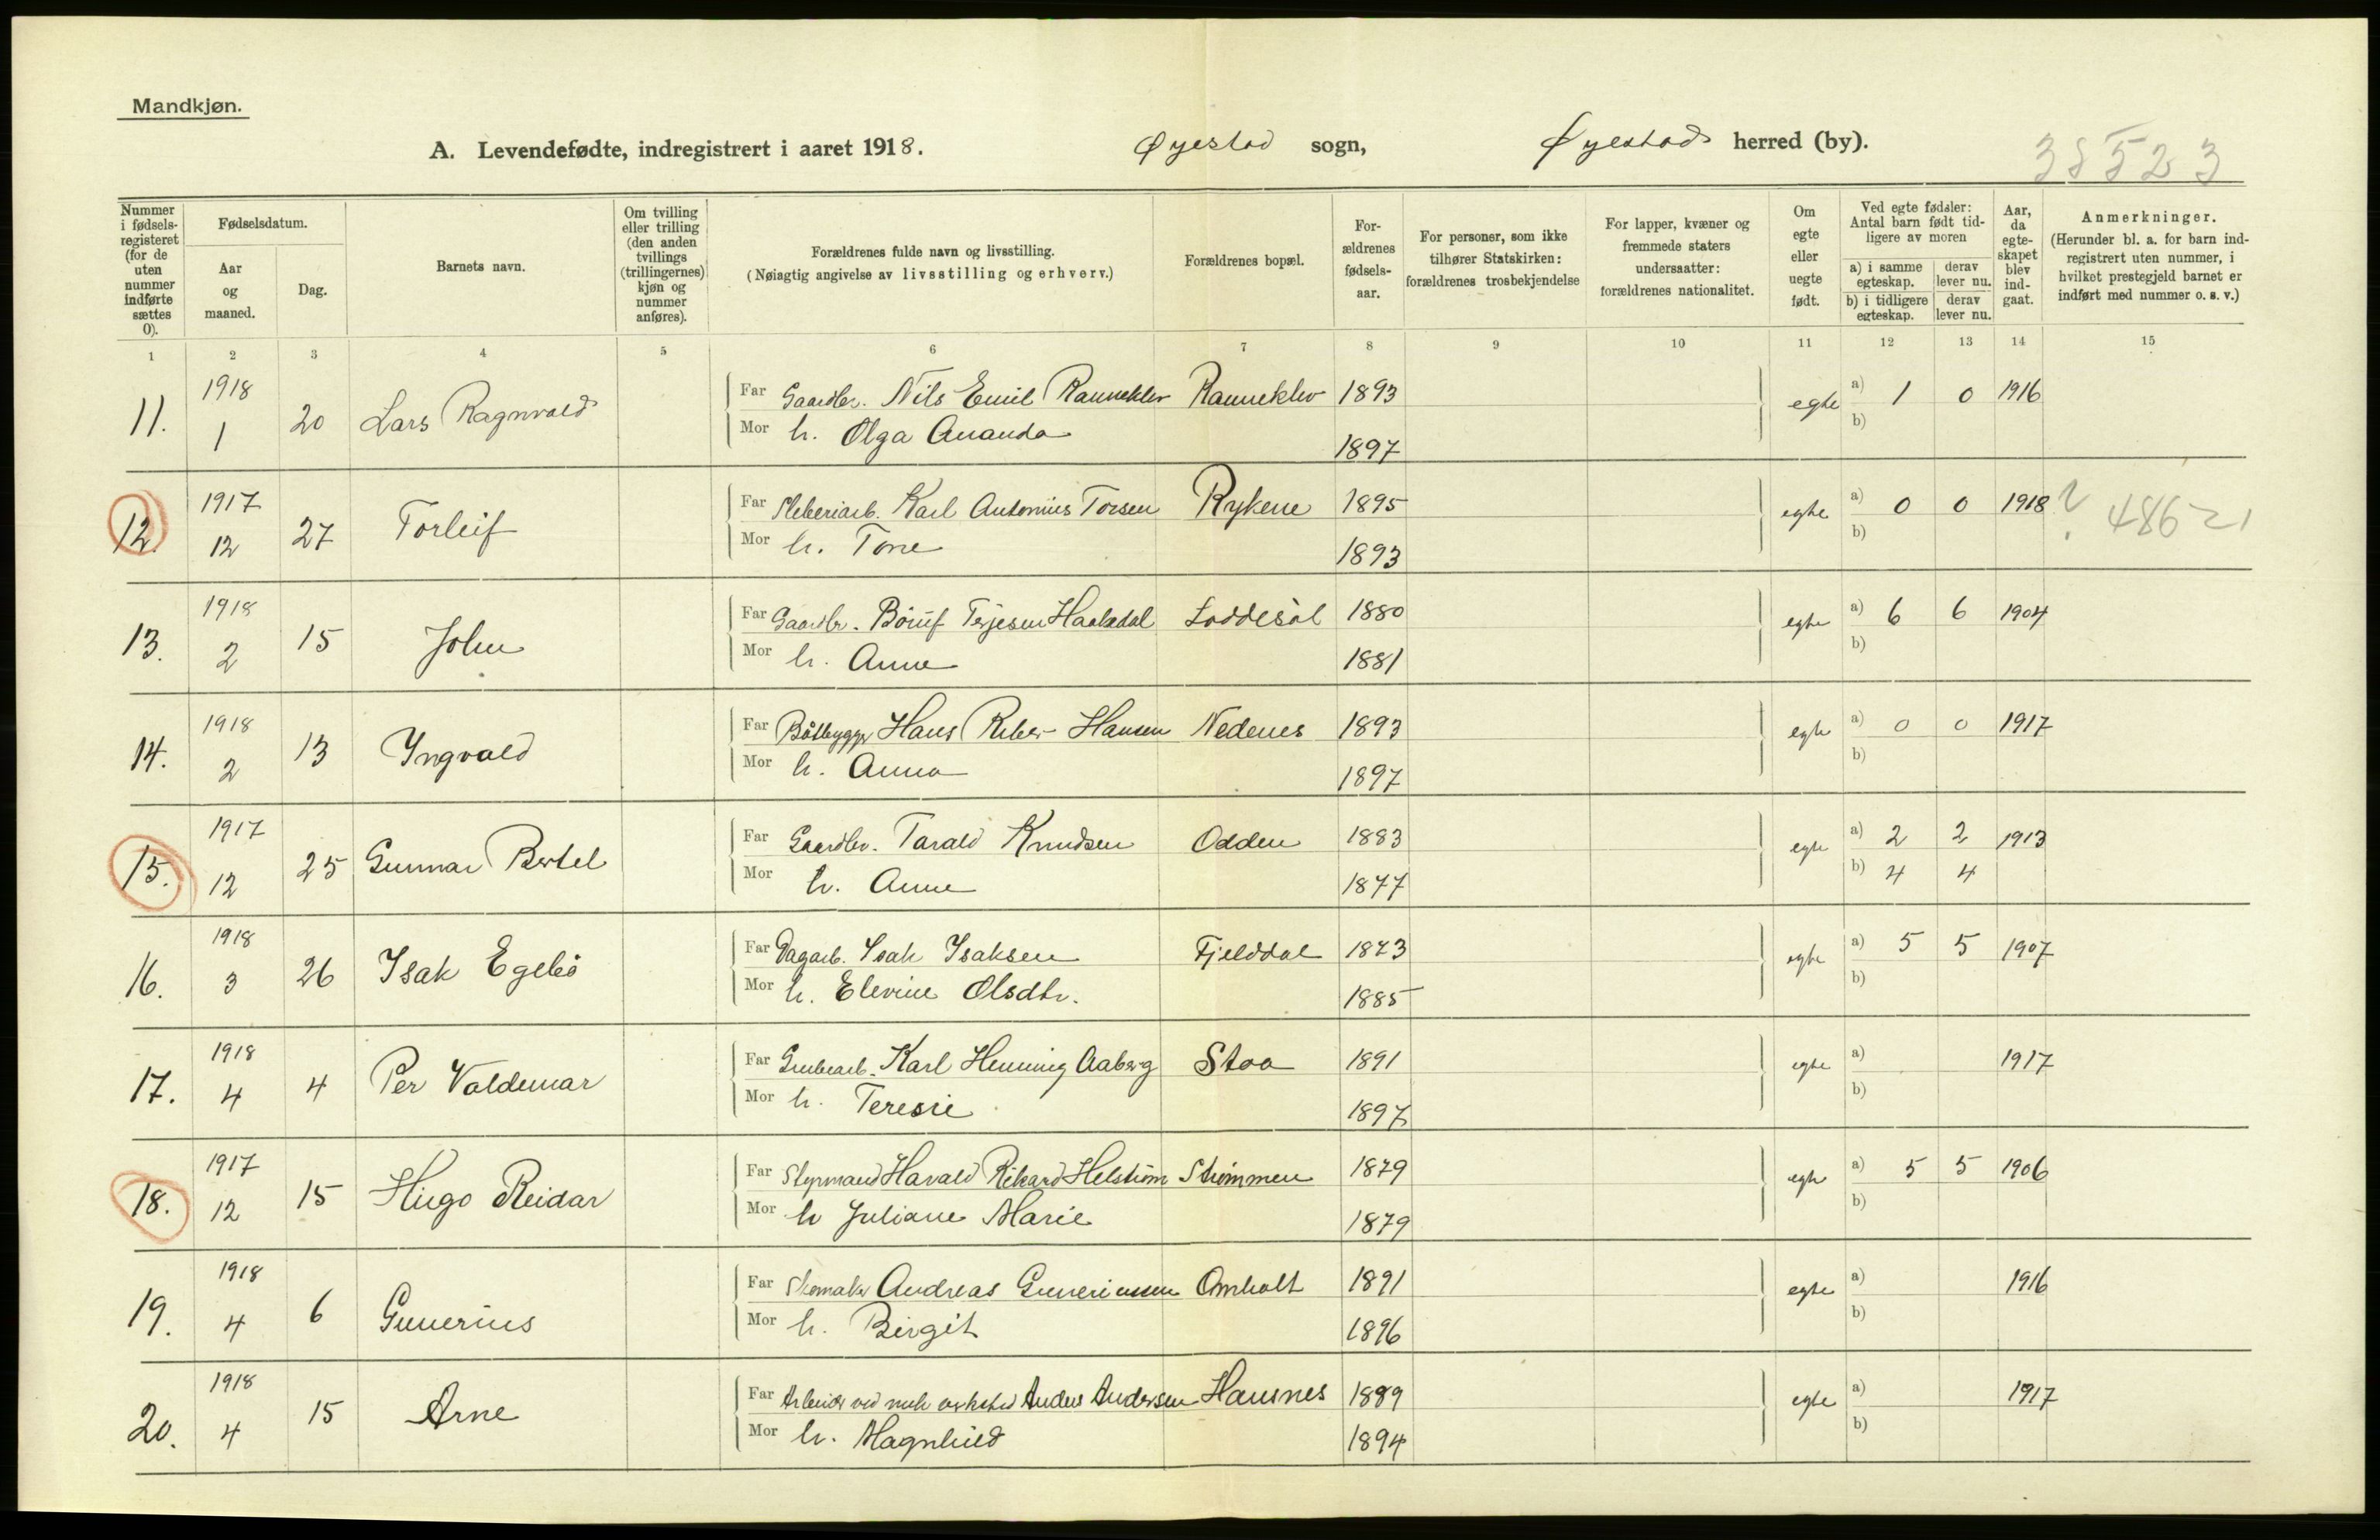 Mandkjøn.
A. Levendefødte, indregistrert i aaret 1918. Øyestad sogn, Øyestad herred (by).
38523
Nummer i fødsels-registeret (for de uten nummer indførte sættes 0).
Fødselsdatum.
Aar og maaned.
Dag.
Barnets navn.
Om tvilling eller trilling (den anden tvillings (trillingernes) kjøn og nummer anføres).
Forældrenes fulde navn og livsstilling.
(Nøiagtig angivelse av livsstilling og erhverv.)
Forældrenes bopæl.
For-ældrenes fødsels-aar.
For personer, som ikke tilhører Statskirken: forældrenes trosbekjendelse
For lapper, kvæner og fremmede staters undersaatter: forældrenes nationalitet.
Om egte eller uegte født.
Ved egte fødsler: Antal barn født tid-ligere av moren
a) i samme egteskap. derav lever nu.
b) i tidligere egteskap. derav lever nu.
Aar, da egte-skapet blev ind-gaat.
Anmerkninger.
(Herunder bl. a. for barn ind-registrert uten nummer, i hvilket prestegjeld barnet er indført med nummer o. s. v.)
1 2 3 4 5 6 7 8 9 10 11 12 13 14 15
11. 1918 1 20 Lars Ragnvald Far Gaardbr. Nils Emil Ranneklev Ranneklev 1893 egte a) 1 0 1916
Mor h. Olga Amanda 1897 b)
12. 1917 12 27 Torleif Far Sliberiarb. Karl Antonius Torsen Rykene 1895 egte a) 0 0 1918 ? 48621
Mor h. Tone 1893 b)
13. 1918 2 15 John Far Gaardbr. Børuf Terjesen Haabdal Loddesøl 1880 egte a) 6 6 1904
Mor h. Anne 1881 b)
14. 1918 2 13 Yngvald Far Båtbygger Hans Riber Hansen Nedenes 1893 egte a) 0 0 1917
Mor h. Anna 1897 b)
15. 1917 12 25 Gunnar Bertel Far Gaardbr. Tarald Knudsen Odden 1883 egte a) 2 2 1913
Mor h. Anne 1877 b) 4 4
16. 1918 3 26 Isak Egebø Far Dagarb. Isak Isaksen Fjelddal 1873 egte a) 5 5 1907
Mor h. Elevine Olsdtr. 1885 b)
17. 1918 4 4 Per Valdemar Far Grubearb. Karl Henning Aaberg Stoa 1891 egte a) 1917
Mor h. Teresie 1897 b)
18. 1917 12 15 Hugo Reidar Far Styrmand Harald Rikard Helstrøm Strømmen 1879 egte a) 5 5 1906
Mor h Juliane Marie 1879 b)
19. 1918 4 6 Gunerius Far Skomaker Andreas Guneriussen Omholt 1891 egte a) 1916
Mor h. Birgit 1896 b)
20. 1918 4 15 Arne Far Arbeider ved mek verksted Anders Andersen Hausnes 1889 egte a) 1917
Mor h. Magnhild 1894 b)